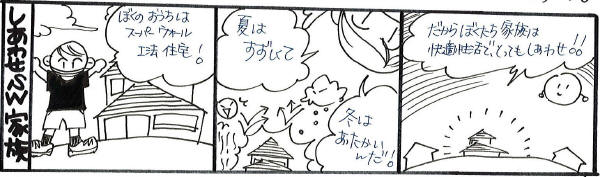 しあわせさん家族
ぼくのおうちは
スーパーウォール
工法住宅！
夏は
すずしくて
冬は
あったかい
んだ！
だからぼくたち家族は
快適生活でとってもしあわせ!!